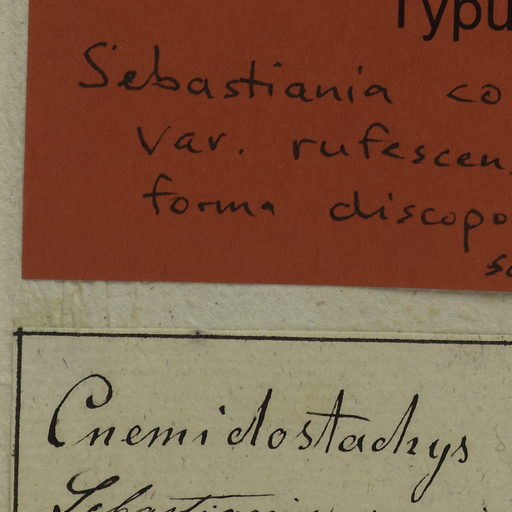 Typu
Sebastiania co
var. rufescen
forma discopo
Cnemidostachys
Sebastiania